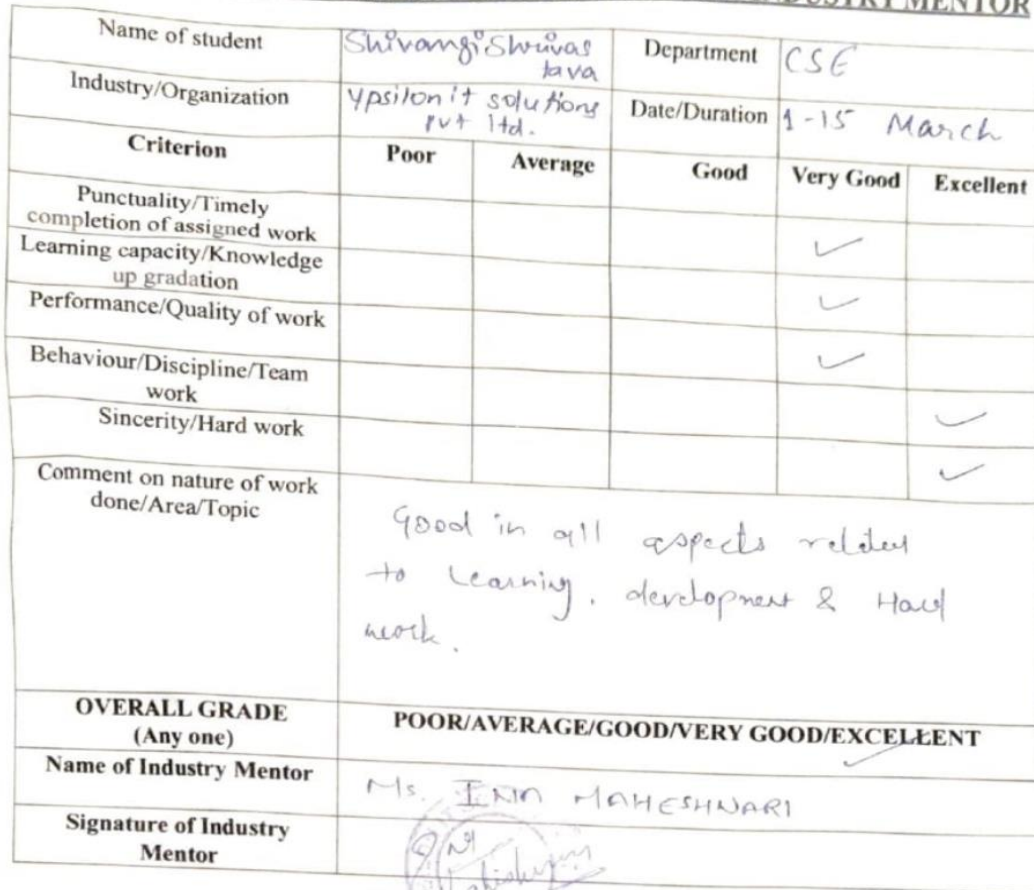 INDUSTRY MENTOR
Name of student Shivangi Shrivas Department CSE
tava
Industry/Organization Ypsilon it solutions Date/Duration 1-15 March
pvt ltd.
Criterion Poor Average Good Very Good Excellent
Punctuality/Timely
completion of assigned work
Learning capacity/Knowledge
up gradation
Performance/Quality of work
Behaviour/Discipline/Team
work
Sincerity/Hard work
Comment on nature of work
done/Area/Topic
Good in all aspects related
to Learning, development & Hard
work.
OVERALL GRADE POOR/AVERAGE/GOOD/VERY GOOD/EXCELLENT
(Any one)
Name of Industry Mentor Ms. MAHESHWARI
Signature of Industry
Mentor